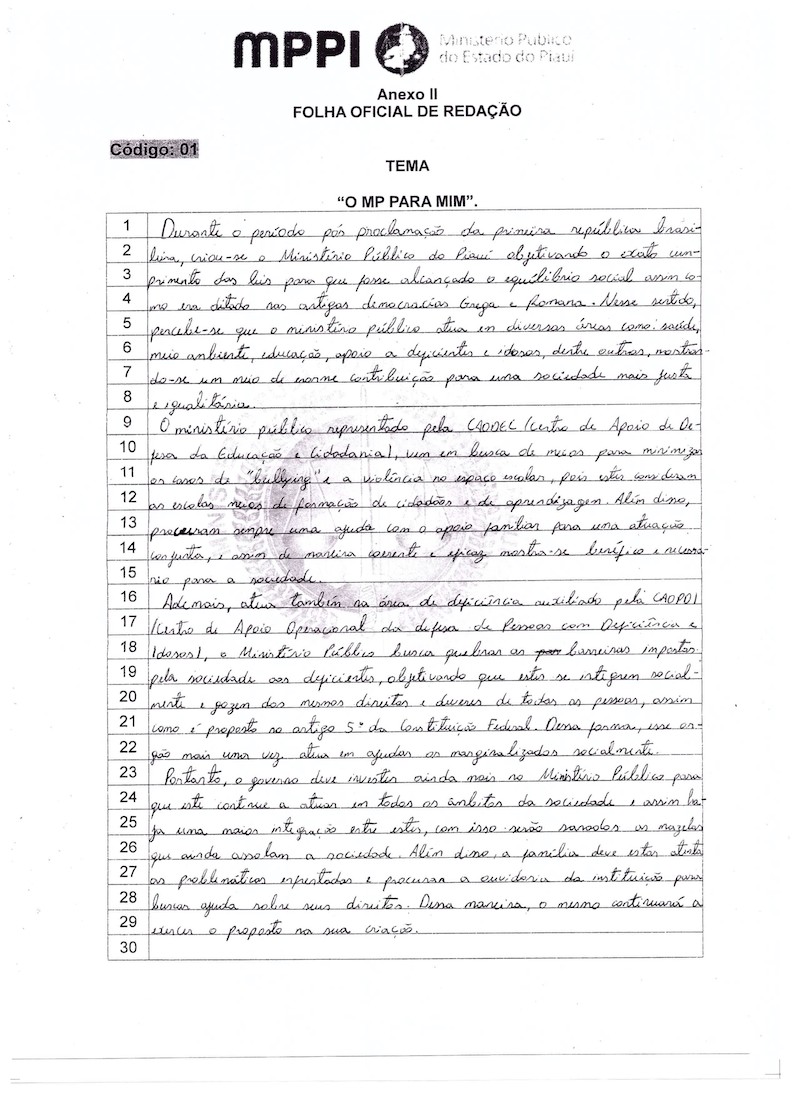 MPPI Ministério Público
do Estado do Piauí
Anexo II
FOLHA OFICIAL DE REDAÇÃO
Código: 01
TEMA
“O MP PARA MIM”.
1 Durante o período pós proclamação da primeira república brasi-
2 leira, criou-se o Ministério Público do Piauí objetivando o exato cum-
3 primento das leis para que fosse alcançado o equilíbrio social assim co-
4 mo era ditado nas antigas democracias Grega e Romana. Nesse sentido,
5 percebe-se que o ministério público atua em diversas áreas como: saúde,
6 meio ambiente, educação, apoio a deficientes e idosos, dentre outros, mostran-
7 do-se um meio de enorme contribuição para uma sociedade mais justa
8 e igualitária.
9 O ministério público representado pela CAODEC (Centro de Apoio de De-
10 fesa da Educação e Cidadania), vem em busca de meios para minimizar
11 os casos de "bullying" e a violência no espaço escolar, pois estes consideram
12 as escolas meios de formação de cidadãos e de aprendizagem. Além disso,
13 procuram sempre uma ajuda com o apoio familiar para uma atuação
14 conjunta, e assim de maneira coerente e eficaz mostra-se benéfico e necessá-
15 rio para a sociedade.
16 Ademais, atua também na área de deficiência auxiliado pela CAOPDI
17 (Centro de Apoio Operacional da defesa de Pessoas com Deficiência e
18 Idosos), o Ministério Público busca quebrar as barreiras impostas
19 pela sociedade aos deficientes, objetivando que estes se integrem social-
20 mente e gozem dos mesmos direitos e deveres de todas as pessoas, assim
21 como é proposto no artigo 5º da Constituição Federal. Dessa forma, esse ór-
22 gão mais uma vez atua em ajudar os marginalizados socialmente.
23 Portanto, o governo deve investir ainda mais no Ministério Público para
24 que este continue a atuar em todos os âmbitos da sociedade e assim ha-
25 ja uma maior integração entre estes, com isso serão sanados as mazelas
26 que ainda assolam a sociedade. Além disso, a família deve estar atenta
27 as problemáticas enfrentadas e procurar a ouvidoria da instituição para
28 buscar ajuda sobre seus direitos. Dessa maneira, o mesmo continuará a
29 exercer o proposto na sua criação.
30